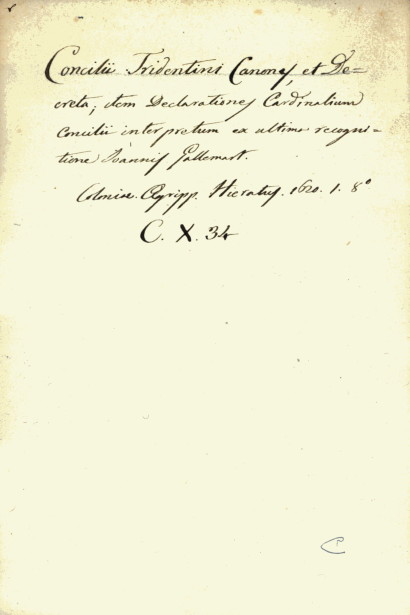 Concilii Tridentini Canones, et De=
creta; item Declarationes Cardinalium
Concilii interpretum ex ultima recogni=
tione Joannis Gallemart.
Coloniae. Agripp. Hieratus. 1620. 1. 8º
C. X. 34
C